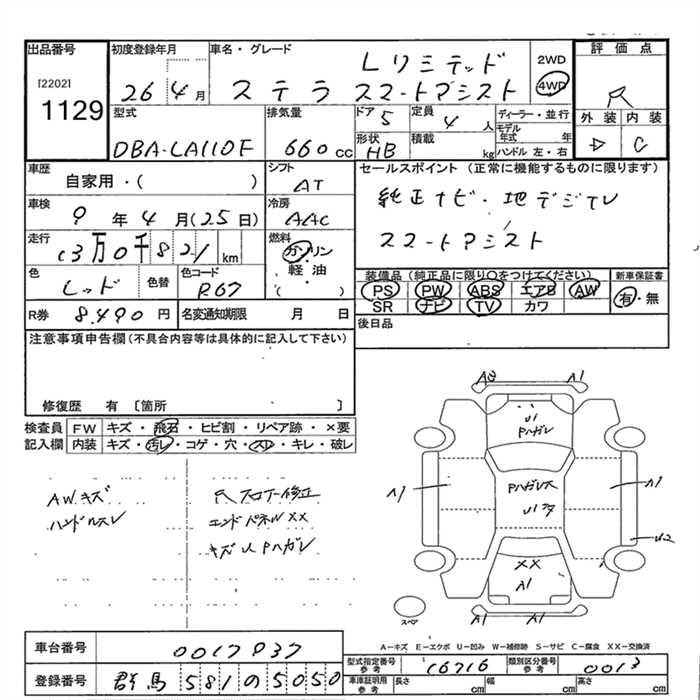 出品番号 初度登録年月 車名・グレード 評価点
[2202] 1129
26 4月 ステラ Lリミテッド スマートアシスト 2WD 4WD
R
型式 排気量 ドア 定員 ディーラー・並行 外装 内装
DBA-LA110F 660cc 5 4人 モデル年式 年
形状 積載 D C
HB kg ハンドル 左・右
車歴 シフト セールスポイント (正常に機能するものに限ります)
自家用・( ) AT
純正ナビ・地デジTV
車検 冷房
9年4月(25日) AAC
スマートアシスト
走行 燃料
13万0千821km ガソリン
軽・油
( )
色 色替 色コード 装備品 (純正品に限り○をつけてください) 新車保証書
レッド R67 PS PW ABS エアB AW 有・無
SR ナビ TV カワ
R券 8,490円 名変通知期限 月 日 後日品
注意事項申告欄 (不具合内容等は具体的に記入して下さい)
修復歴 有 〔箇所 〕
検査員 FW キズ・飛石・ヒビ割・リペア跡・×要
記入欄 内装 キズ・汚レ・コゲ・穴・スレ・キレ・破レ
AWキズ
ハンドルスレ
Rフロアー修正
エンドパネルXX
キズU Pハガレ
A1
U1
Pハガレ
A1
Pハガレ大
A1
U2
XX
A1
A1 A1
スペア
A-キズ E-エクボ U-凹み W-補修跡 S-サビ C-腐食 XX-交換済
車台番号 0017037
型式指定番号 参考 16716 類別区分番号 参考 0013
登録番号 群馬 581 の 5050
車庫証明用 参考 長さ cm 幅 cm 高さ cm